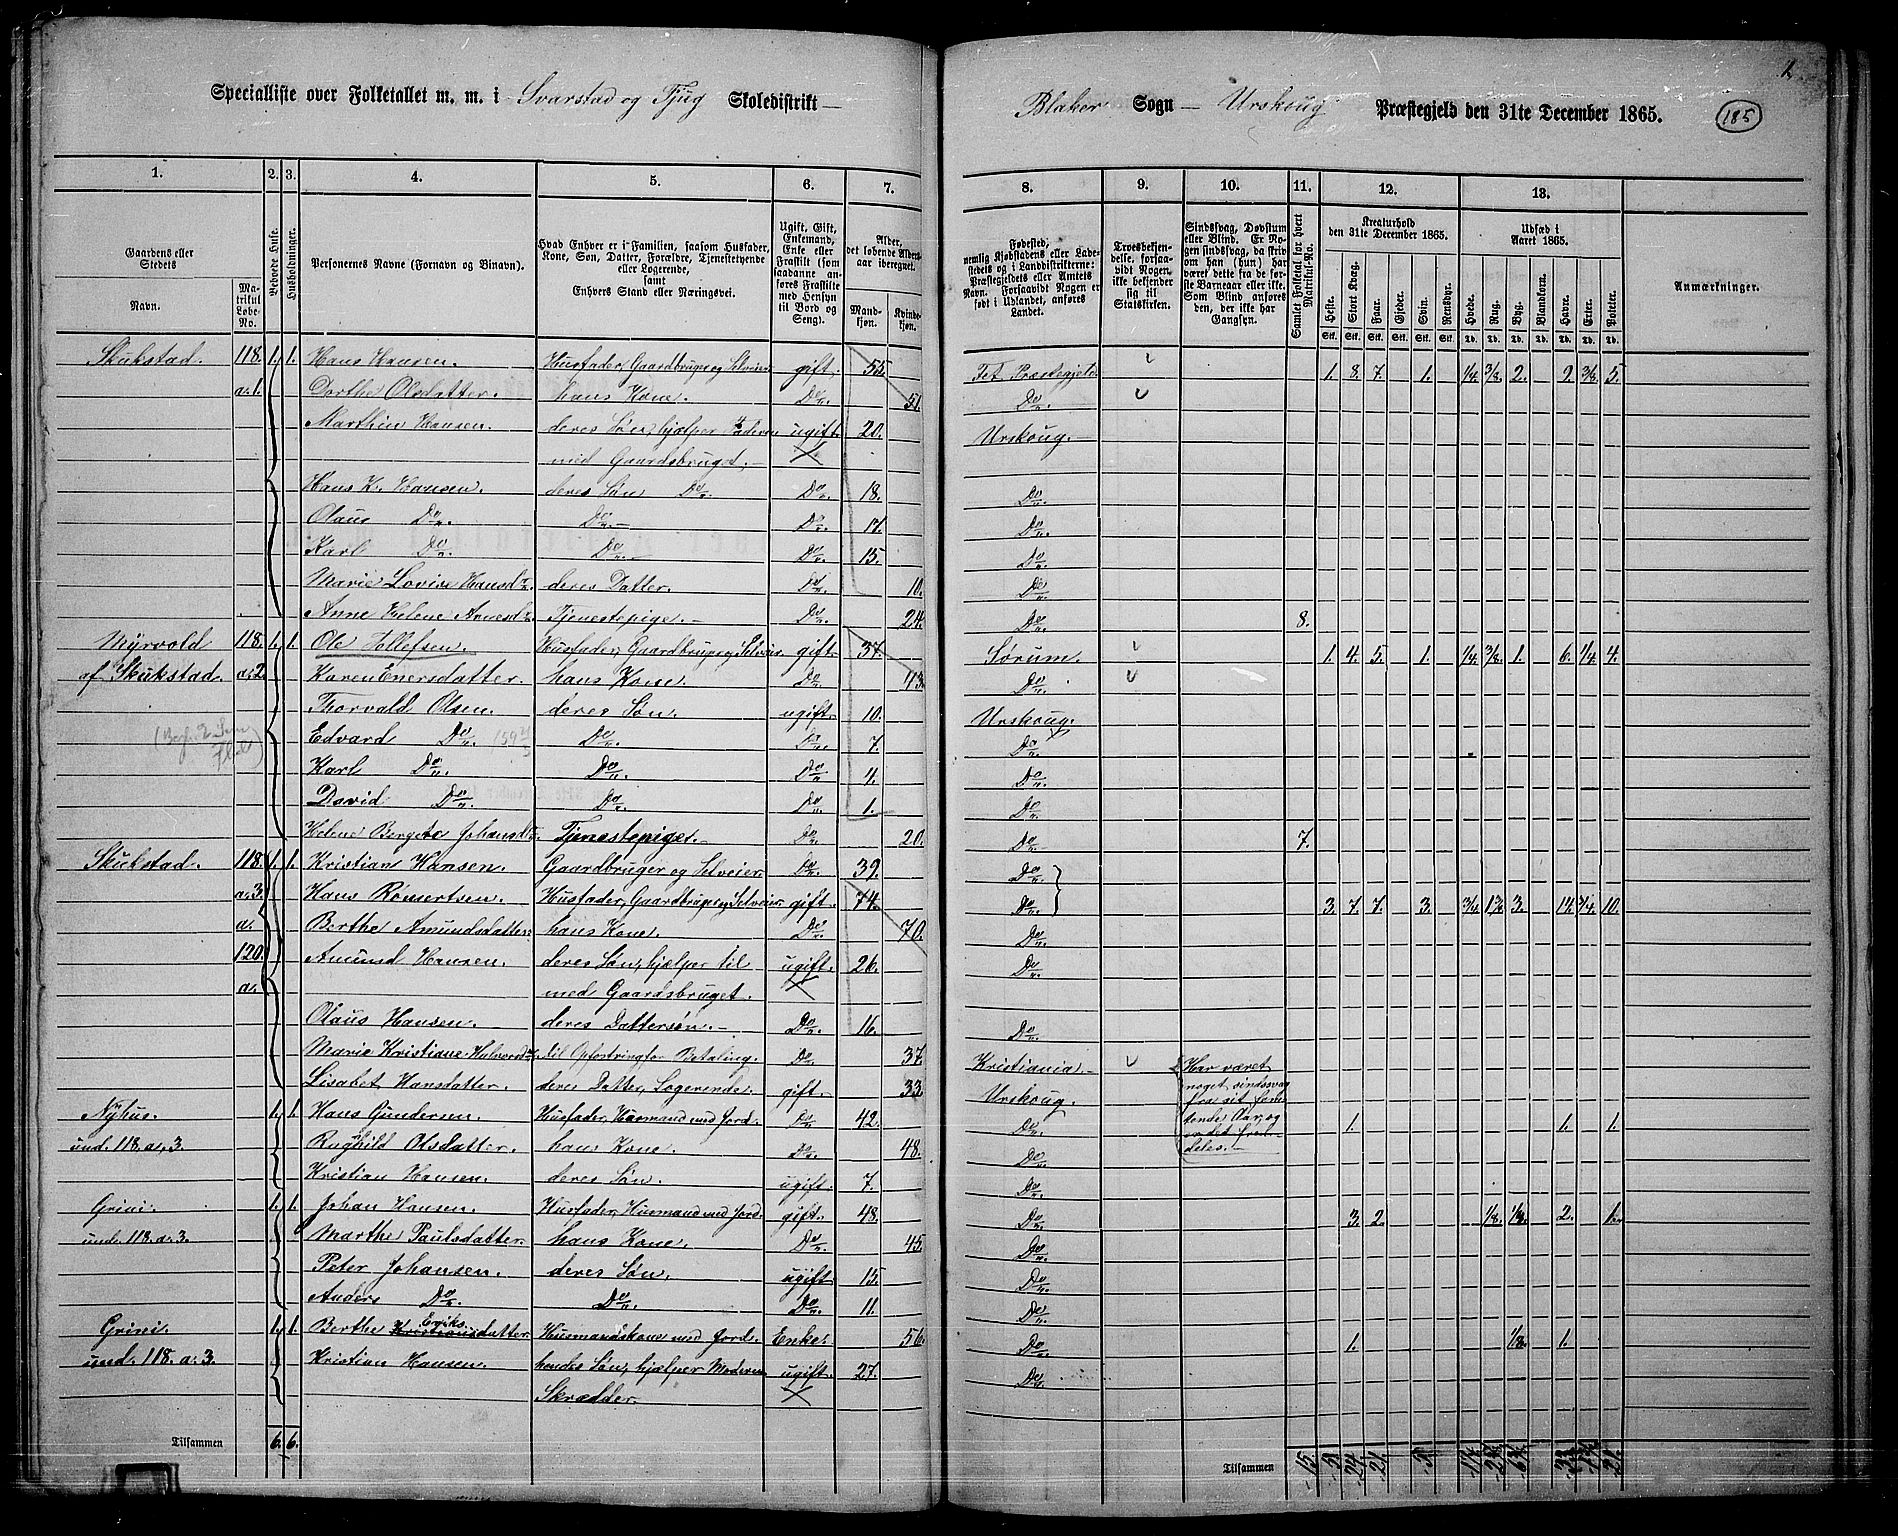 Specialliste over Folketallet m. m. i Svarstad og Tjug Skoledistrikt
Blaker Sogn Urskoug Præstegjeld den 31te December 1865. 185
1. 2. 3. 4. 5. 6. 7. 8. 9. 10. 11. 12. 13.
Gaardens eller Stedets Navn. Matrikul Løbe-No. Beboede Huse. Husholdninger. Personernes Navne (Fornavn og Binavn).
Hvad Enhver er i Familien, saasom Husfader, Kone, Søn, Datter, Forældre, Tjenestetyende eller Logerende, samt Enhvers Stand eller Næringsvei.
Ugift, Gift, Enkemand, Enke eller Fraskilt (som saadanne anføres Fraskilte med Hensyn til Bord og Seng).
Alder, det løbende Aldersaar iberegnet. Mandkjøn. Kvindekjøn.
Fødested, nemlig Kjøbstadens eller Ladestedets og i Landdistrikterne: Præstegjeldets eller Amtets Navn. Forsaavidt Nogen er født i Udlandet, anføres Landet.
Troesbekjendelse, forsaavidt Nogen ikke bekjender sig til Statskirken.
Sindssvag, Døvstum eller Blind. Er Nogen sindssvag, da skriv om han (hun) har været dette fra de første Barneaar eller ikke. Som Blind anføres den, der ikke har Gangsyn.
Samlet Folketal for hvert Matrikul-No.
Kreaturhold den 31te December 1865. Heste. Stort Kvæg. Faar. Gjeder. Svin. Rensdyr.
Udsæd i Aaret 1865. Hvede. Rug. Byg. Blandkorn. Havre. Erter. Poteter.
Anmærkninger.
Skukstad. 118. 1. 1. Hans Hansen. Husfader, Gaardbruger og Selveier gift. 55. Fet Præstegjeld 1. 8. 7. 1. 1/4. 3/8. 2. 9. 3/8. 5.
a. 1. Dorthe Olsdatter. hans Kone. Do. 51. Do.
Marthin Hansen. deres Søn, hjælper Faderen ugift. 20. Urskoug.
med Gaardsbruget.
Hans K. Hansen. deres Søn Do. Do. 18. Do.
Olaus Do. Do. Do. 17. Do.
Karl Do. Do. Do. 15. Do.
Marie Lovise Hansd. deres Datter. Do. 10. Do.
Anne Helene Arnesd. Tjenestepige. Do. 24. Do. 8.
Myrvold 118. 1. 1. Ole Tollefsen. Husfader, Gaardbruger og Selveier gift. 37. Sørum. 1. 4. 5. 1. 1/4. 3/8. 1. 6. 1/4. 4.
af Skukstad a. 2. Karen Enersdatter. hans Kone. Do. 43. Do.
Thorvald Olsen. deres Søn. ugift. 10. Urskoug.
Edvard Do. Do. Do. 7. Do.
Karl Do. Do. Do. 4. Do.
David Do. Do. Do. 1. Do.
Helene Bergete Johansd. Tjenestepige. Do. 20. Do. 7.
Skukstad. 118. 1. 1. Kristian Hansen. Gaardbruger og Selveier. Do. 39. Do.
a. 3. Hans Romertsen. Husfader, Gaardbruger og Selveier gift. 74. Do. 3. 7. 7. 3. 3/4. 3. 3/4. 10.
a. Berthe Amundsdatter. hans Kone. Do. 70. Do.
120. Amund Hansen. deres Søn, hjælper til ugift. 26. Do.
a. med Gaardsbruget.
Olaus Hansen. deres Dattersøn. Do. 16. Do.
Marie Kristiane Halvorsd. til Opfostring for Betaling. Do. 37. Kristiania. Har været
noget sindssvag
fra sit femtende Aar, og
deles.
Lisabet Hansdatter. deres Datter, Logerende. gift. 33. Urskoug.
Nyhus. 1. 1. Hans Gundersen. Husfader, Husmand med Jord. Do. 42. Do. 1. 1. 1.
und. 118. a. 3. Ragnhild Olsdatter. hans Kone. Do. 48. Do.
Kristian Hansen. deres Søn. ugift. 7. Do.
Grini. 1. 1. Johan Hansen. Husfader, Husmand med Jord. gift. 48. Do. 3. 2. 1/8. 1/8. 2. 1.
und. 118. a. 3. Marthe Paulsdatter. hans Kone. Do. 45. Do.
Peter Johansen. deres Søn. ugift. 15. Do.
Anders Do. Do. Do. 11. Do.
Grini. 1. 1. Berthe Eriksdatter. Husmandskone med Jord. Enke. 56. Do. 1. 1/8. 1.
und. 118. a. 3. Kristian Hansen. hendes Søn, hjælper Moderen ugift. 27. Do.
Skrædder.
Tilsammen 6. 6. Tilsammen 15. 5. 24. 21. 5. 21.